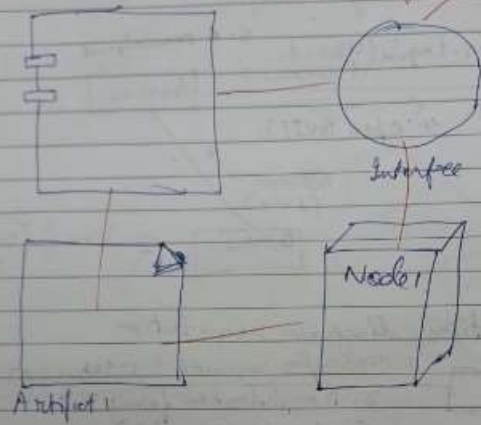 Interface
Node1
Artifact1